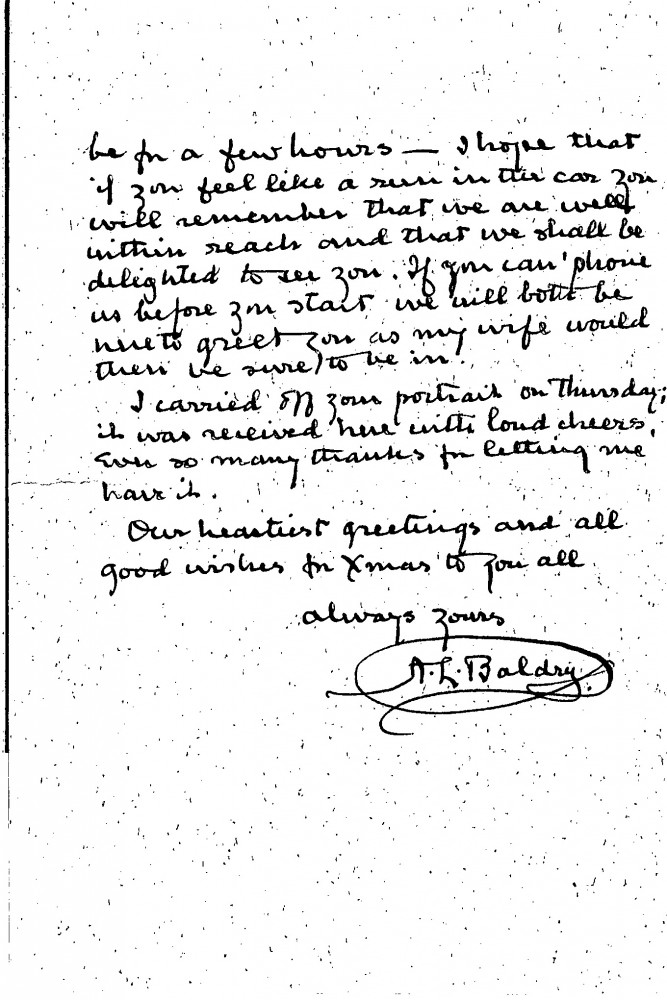 be for a few hours — I hope that
if you feel like a run in the car you
will remember that we are well
within reach and that we shall be
delighted to see you. If you can 'phone
us before you start we will both be
here to greet you as my wife would
then be sure to be in.
I carried off your portrait on Thursday;
it was received here with loud cheers.
Ever so many thanks for letting me
have it.
Our heartiest greetings and all
good wishes for Xmas to you all
always yours
A. L. Baldry.